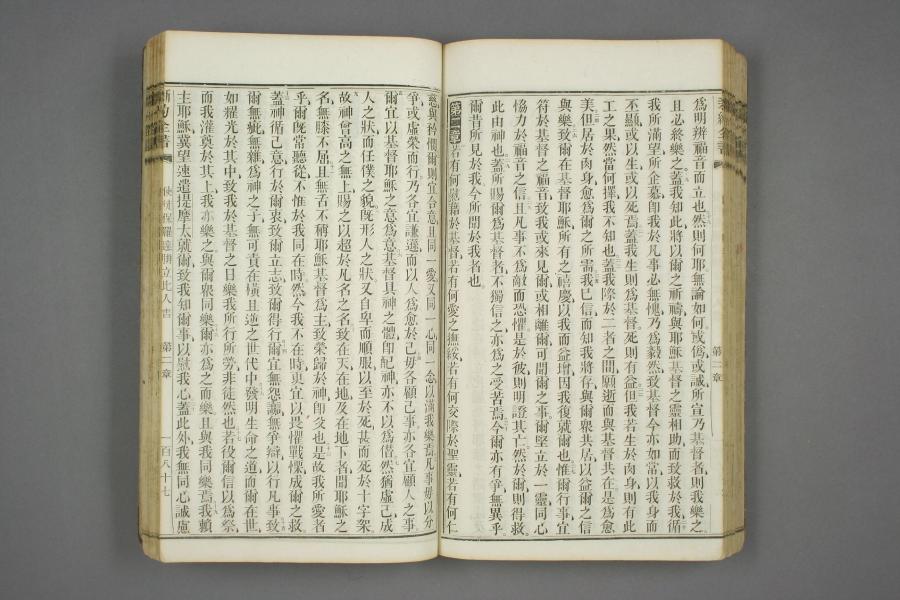 爲明辨福音而立也然則何耶無論如何或僞或誠所宣乃基督者則我樂之
且必終樂之蓋我知此將以爾之祈禱與耶穌基督之靈相助而致救於我循
我所滿望所企慕卽我於凡事必無愧乃爲毅然致基督今亦如常以我身而
不顯或以生或以死焉蓋我生則爲基督死則有益但我若生於肉身則有此
工之果然當何擇我不知也蓋我際於二者之間願逝而與基督共在是爲愈
美但居於肉身愈爲爾之所需我已信而知我將存與爾眾共居以益爾之信
與樂致爾在基督耶穌所有之禧慶以我而益增因我復就爾也惟爾行事宜
符於基督之福音致我或來見爾或相離爾可聞爾之事爾堅立於一靈同心
恊力於福音之信且凡事不爲敵而恐懼是於彼則明證其亡然於爾則得救
此由神也蓋所賜爾爲基督者不獨信之亦爲之受苦焉今爾亦有爭無異乎
爾昔所見於我今所聞於我者也
第二章若有何慰藉於基督若有何愛之撫綏若有何交際於聖靈若有何仁
慈與矜憫爾則宜合意且同一愛又同一心同一念以滿我樂焉凡事毋以分
爭或虛榮而行乃各宜謙遜而以人爲愈於己毋各顧己事亦各宜顧人之事
爾宜以基督耶穌之意爲意基督具神之體卽配神亦不以爲僭然猶虛己成
人之狀而任僕之貌旣形人之狀又自卑而順服以至於死甚而死於十字架
故神曾高之無上賜之以超於凡名之名致在天在地及在地下者聞耶穌之
名無膝不屈且無舌不稱耶穌基督爲主致榮歸於神卽父也是故我所愛者
乎爾旣常聽從不惟於我同在時然今我不在時更宜以畏懼戰慄成爾之救
蓋神循己意行於爾衷致爾立志致爾得行爾宜無怨讟無爭辯以行凡事致
爾無疵無雜爲神之子無可責在橫且逆之世代中發明生命之道而爾在世
如耀光於其中致我於基督之日樂我所行所勞非徒然也若役爾信以爲祭
而我灌奠於其上我亦樂之與爾眾同樂爾亦爲之而樂且與我同樂焉我賴
主耶穌冀望速遣提摩太就爾致我知爾事以慰我心蓋此外我無同心誠慮
第二章
第二章
一百八十七